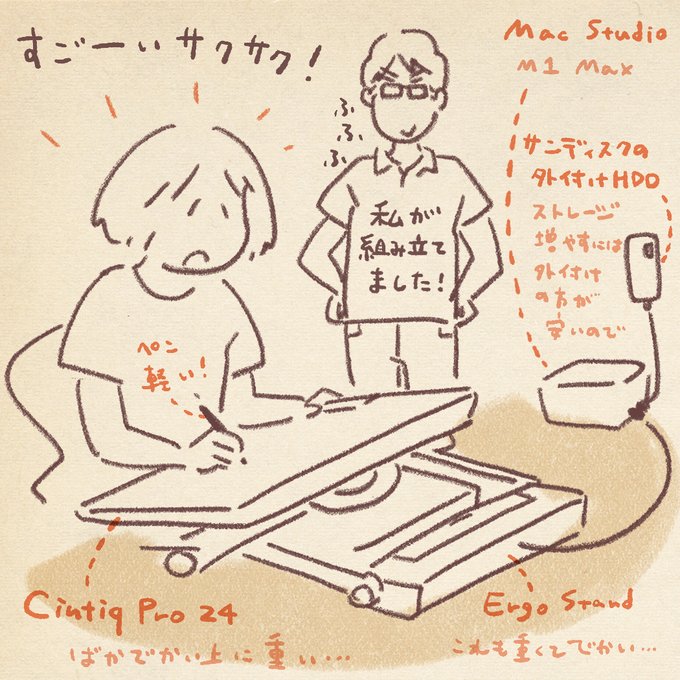 すごーいサクサク!
Mac Studio
M1 Max
サンディスクの
外付けHDD
ストレージ
増やすには
外付け
の方が
安いので
ふ
ふ
ふ
私が
組み立て
ました!
ペン
軽い!
Cintiq Pro 24
ばかでかい上に重い…
Ergo Stand
これも重くてでかい…